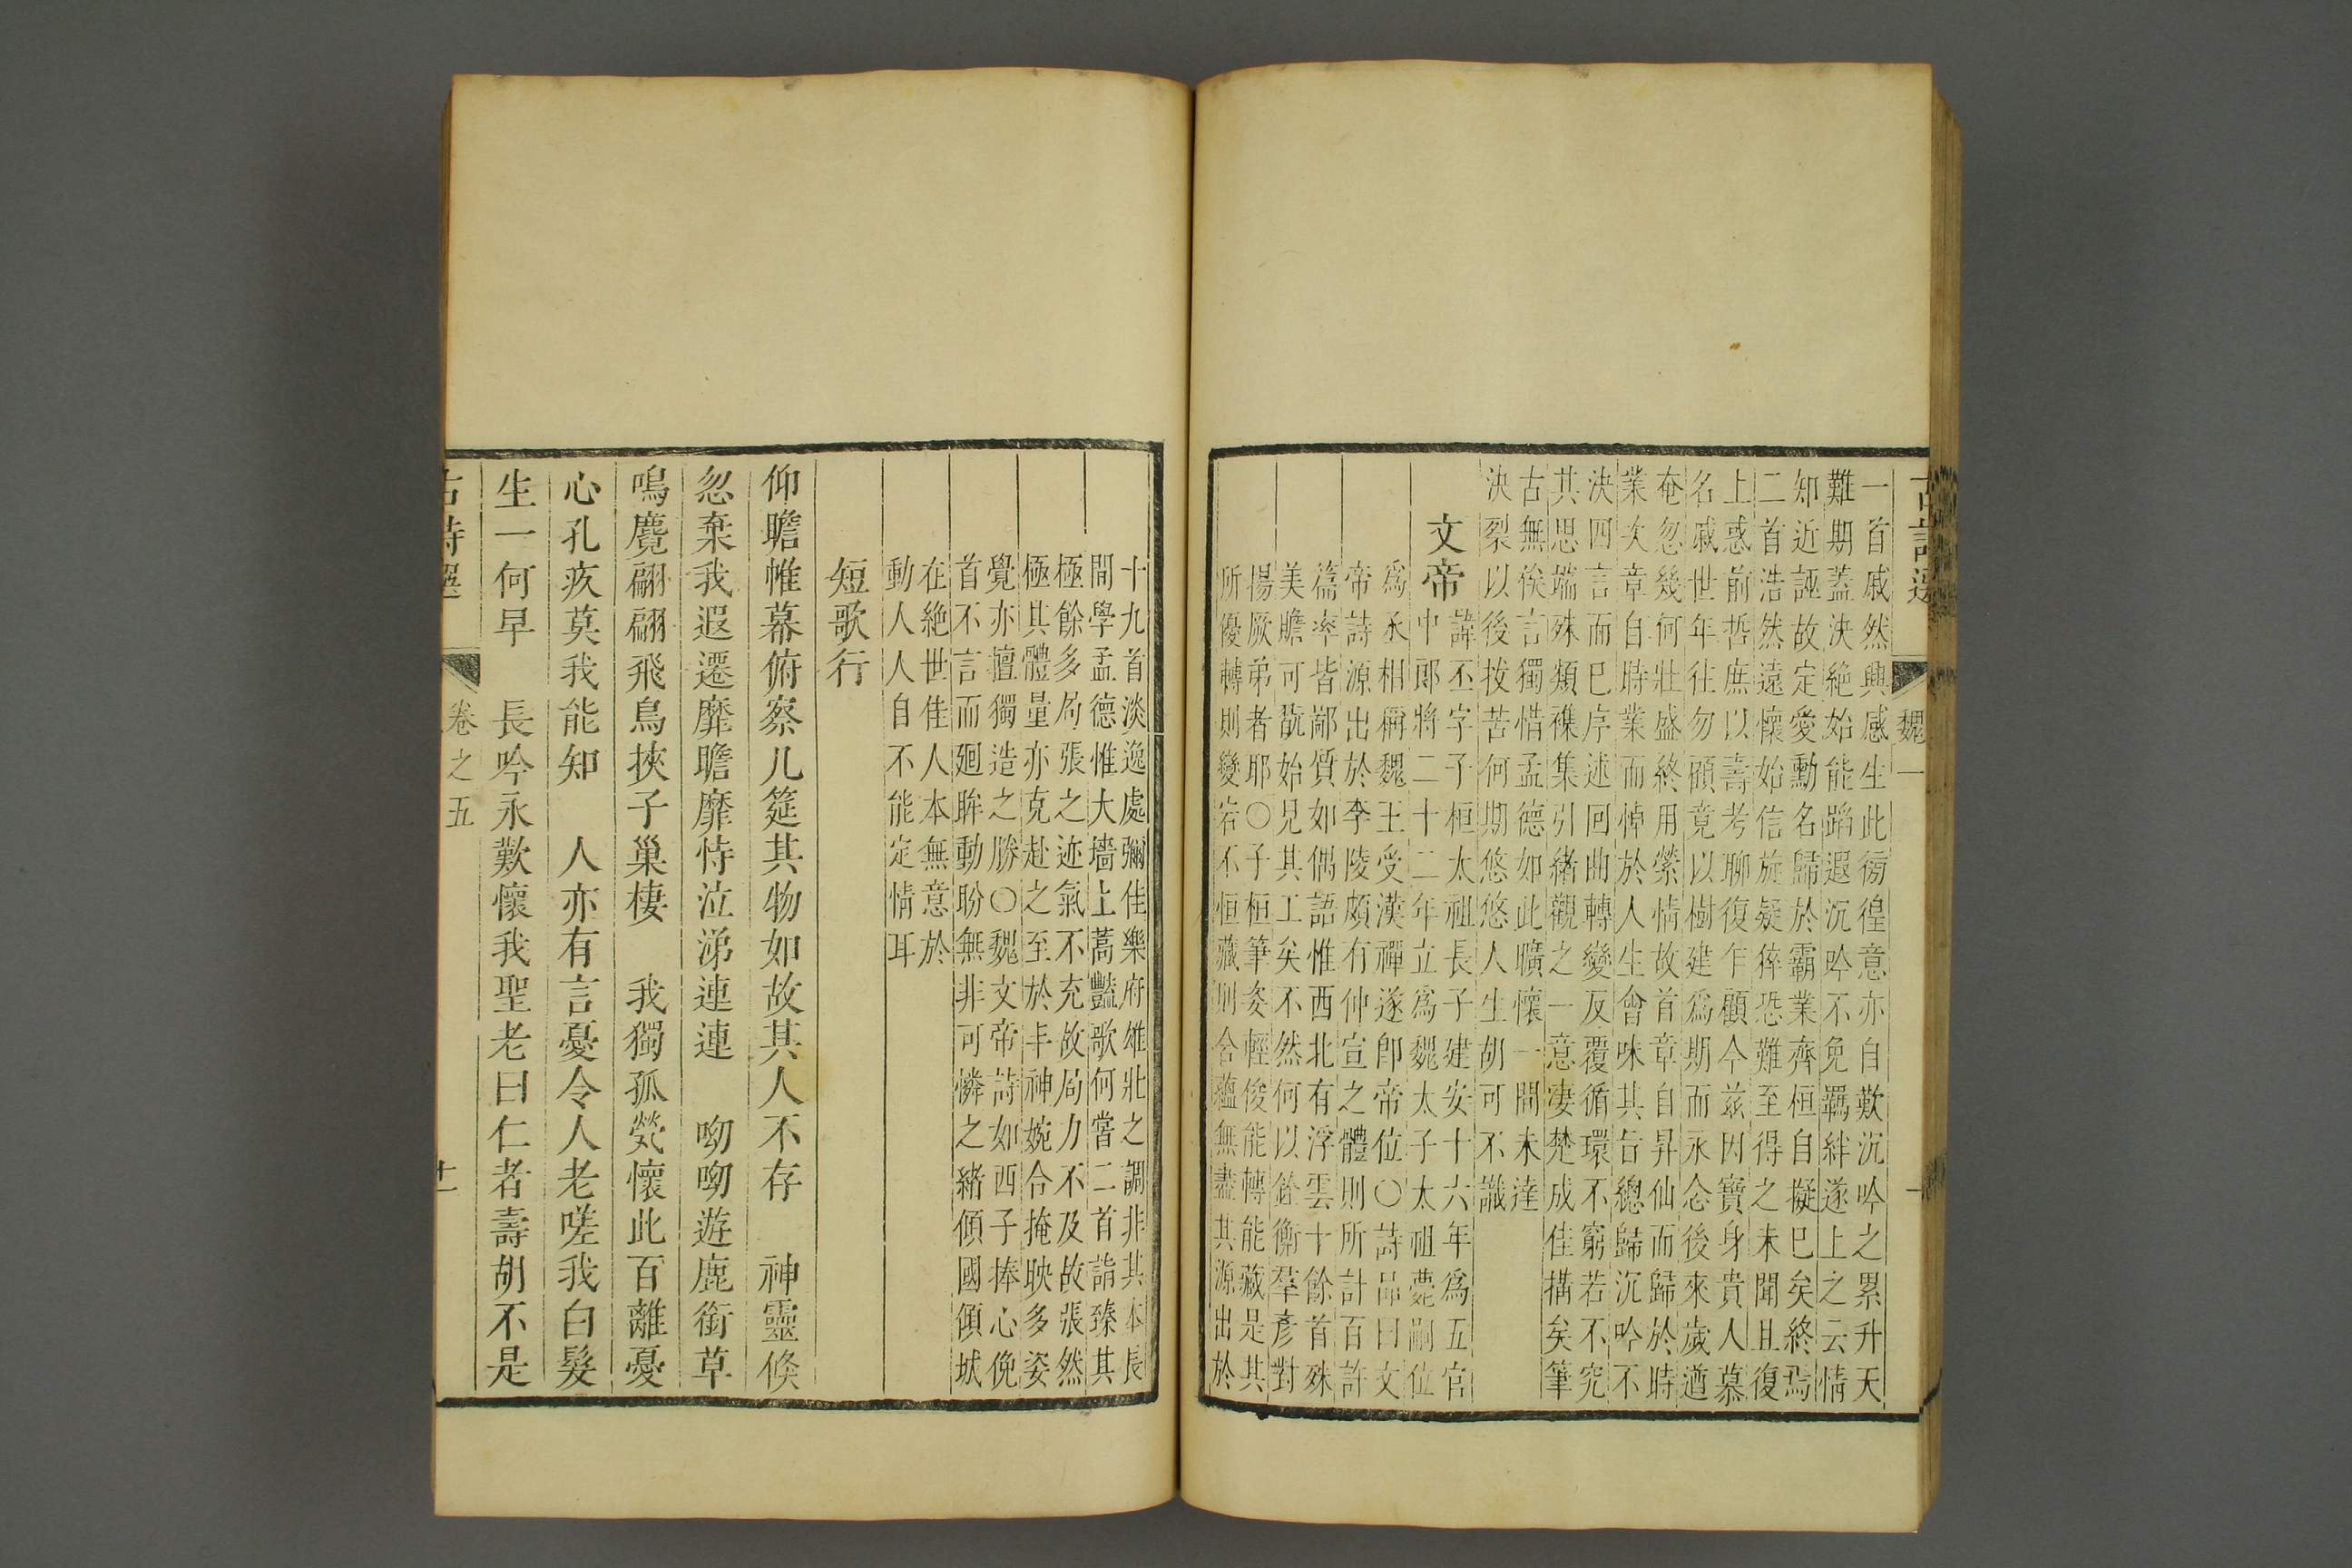 魏一
一首戚然興感生此徬徨意亦自歎沉吟之累升天
難期蓋決絶始能蹈遐沉吟不免羈絆遂上之云情
知近誣故定愛勳名歸於霸業齊桓自擬巳矣終焉
二首浩然遠懷始信旋疑獉恐難至得之未聞且復
上惑前哲庶以壽考聊復乍顧今兹因寶身貴人慕
名戚世年往勿顧竟以樹建爲期而永念後來歲遒
奄忽幾何壯盛終用縈情故首章自昇仙而歸於時
業次章自時業而悼於人生會味其旨總歸沉吟不
決四言而巳序述回曲轉變反覆循環不窮若不究
其思端殊類襍集引緒觀之一意凄楚成佳搆矣筆
古無俟言獨惜孟德如此曠懷一間未達
決裂以後拔苦何期悠悠人生胡可不識
文帝
諱丕字子桓太祖長子建安十六年爲五官
中郎將二十二年立爲魏太子太祖薨嗣位
爲丞相稱魏王受漢禪遂卽帝位○詩品曰文
帝詩源出於李陵頗有仲宣之體則所計百許
篇率皆鄙質如偶語惟西北有浮雲十餘首殊
美贍可翫始見其工矣不然何以銓衡羣彥對
揚厥弟者耶○子桓筆姿輕俊能轉能藏是其
所優轉則變宕不恒藏則含蘊無盡其源出於
十九首淡逸處彌佳樂府雄壯之調非其本長
間學孟德惟大墻上蒿豔歌何嘗二首詣臻其
極餘多局張之迹氣不充故局力不及故張然
極其體量亦克赴之至於丰神婉合掩映多姿
覺亦壇獨造之勝○魏文帝詩如西子捧心俛
首不言而廻眸動盼無非可憐之緒傾國傾城
在絶世佳人本無意於
動人人自不能定情耳
短歌行
仰瞻帷幕俯察几筵其物如故其人不存　神靈倏
忽棄我遐遷靡瞻靡恃泣涕連連　呦呦遊鹿銜草
鳴麑翩翩飛鳥挾子巢棲　我獨孤煢懷此百離憂
心孔疚莫我能知　人亦有言憂令人老嗟我白髮
生一何早　長吟永歎懷我聖老曰仁者壽胡不是
古詩選　卷之五　十一